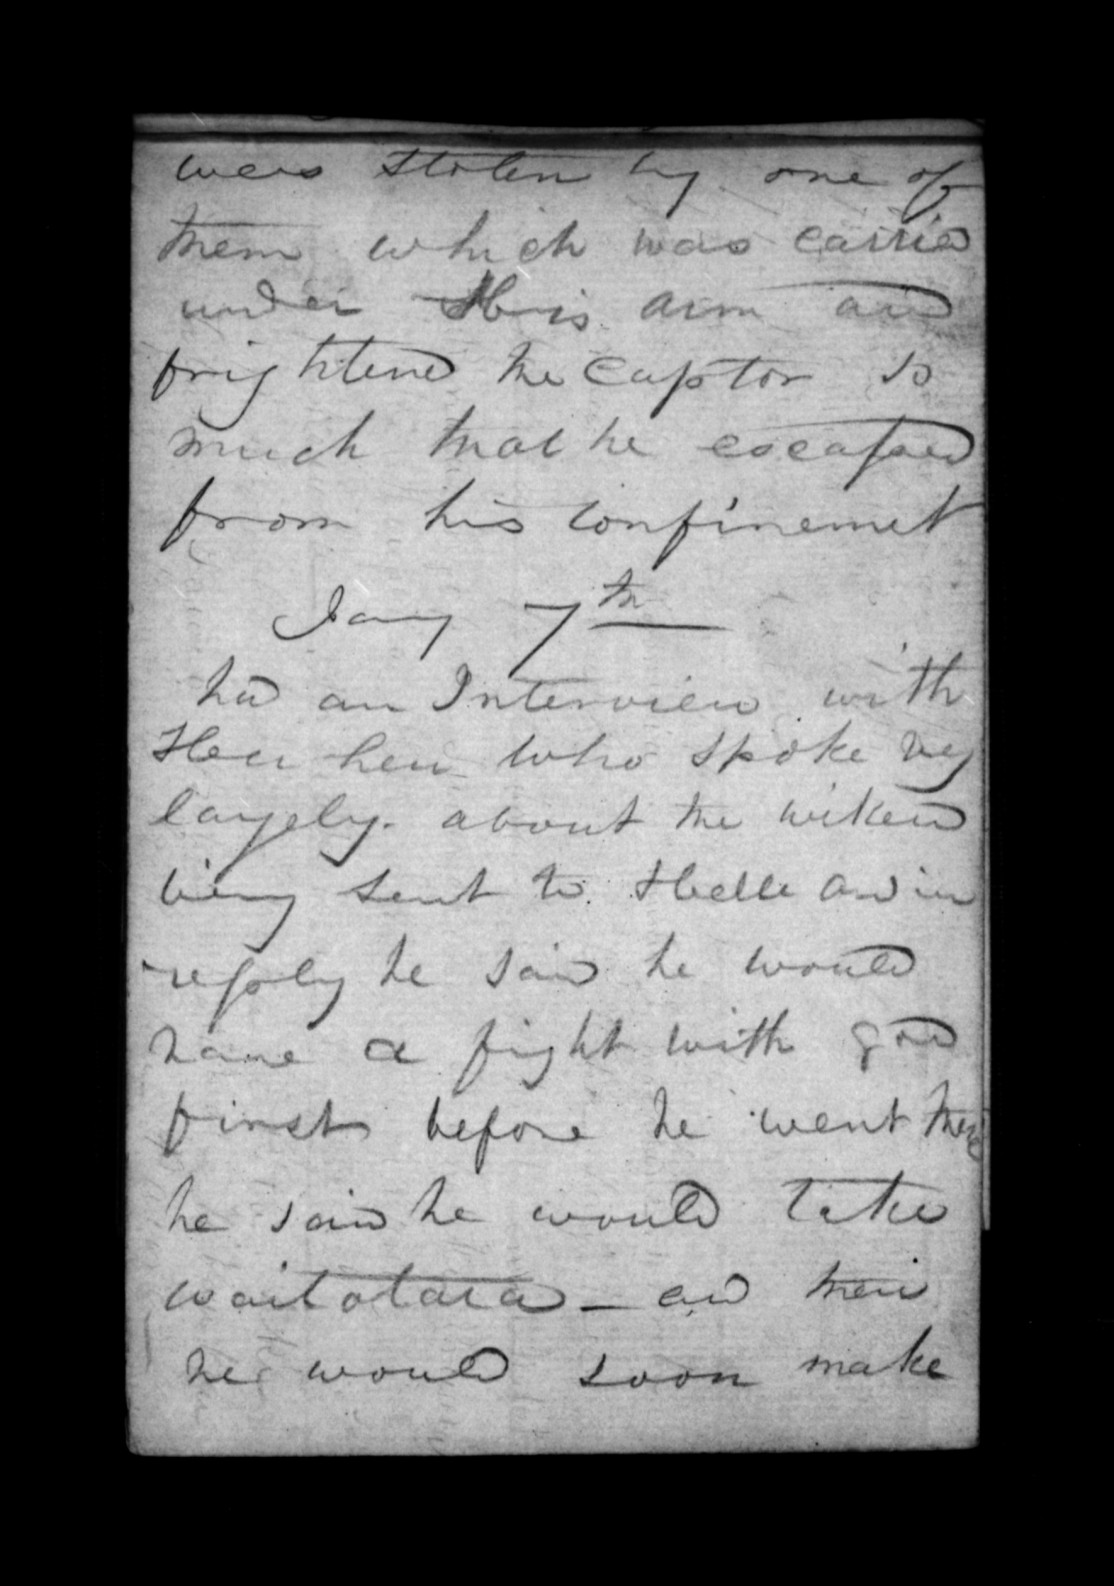 were stolen by one of
them which was carried
under his arm and
frightend the Captor so
much that he escaped
from his confinemet
Jany 7th
had an Interview with
Heu heu who spoke very
largely. about the wiked
being sent to Helle and in
reply he said he would
have a fight with god
first before he went there
he said he would take
waitotara - and then
he would soon make